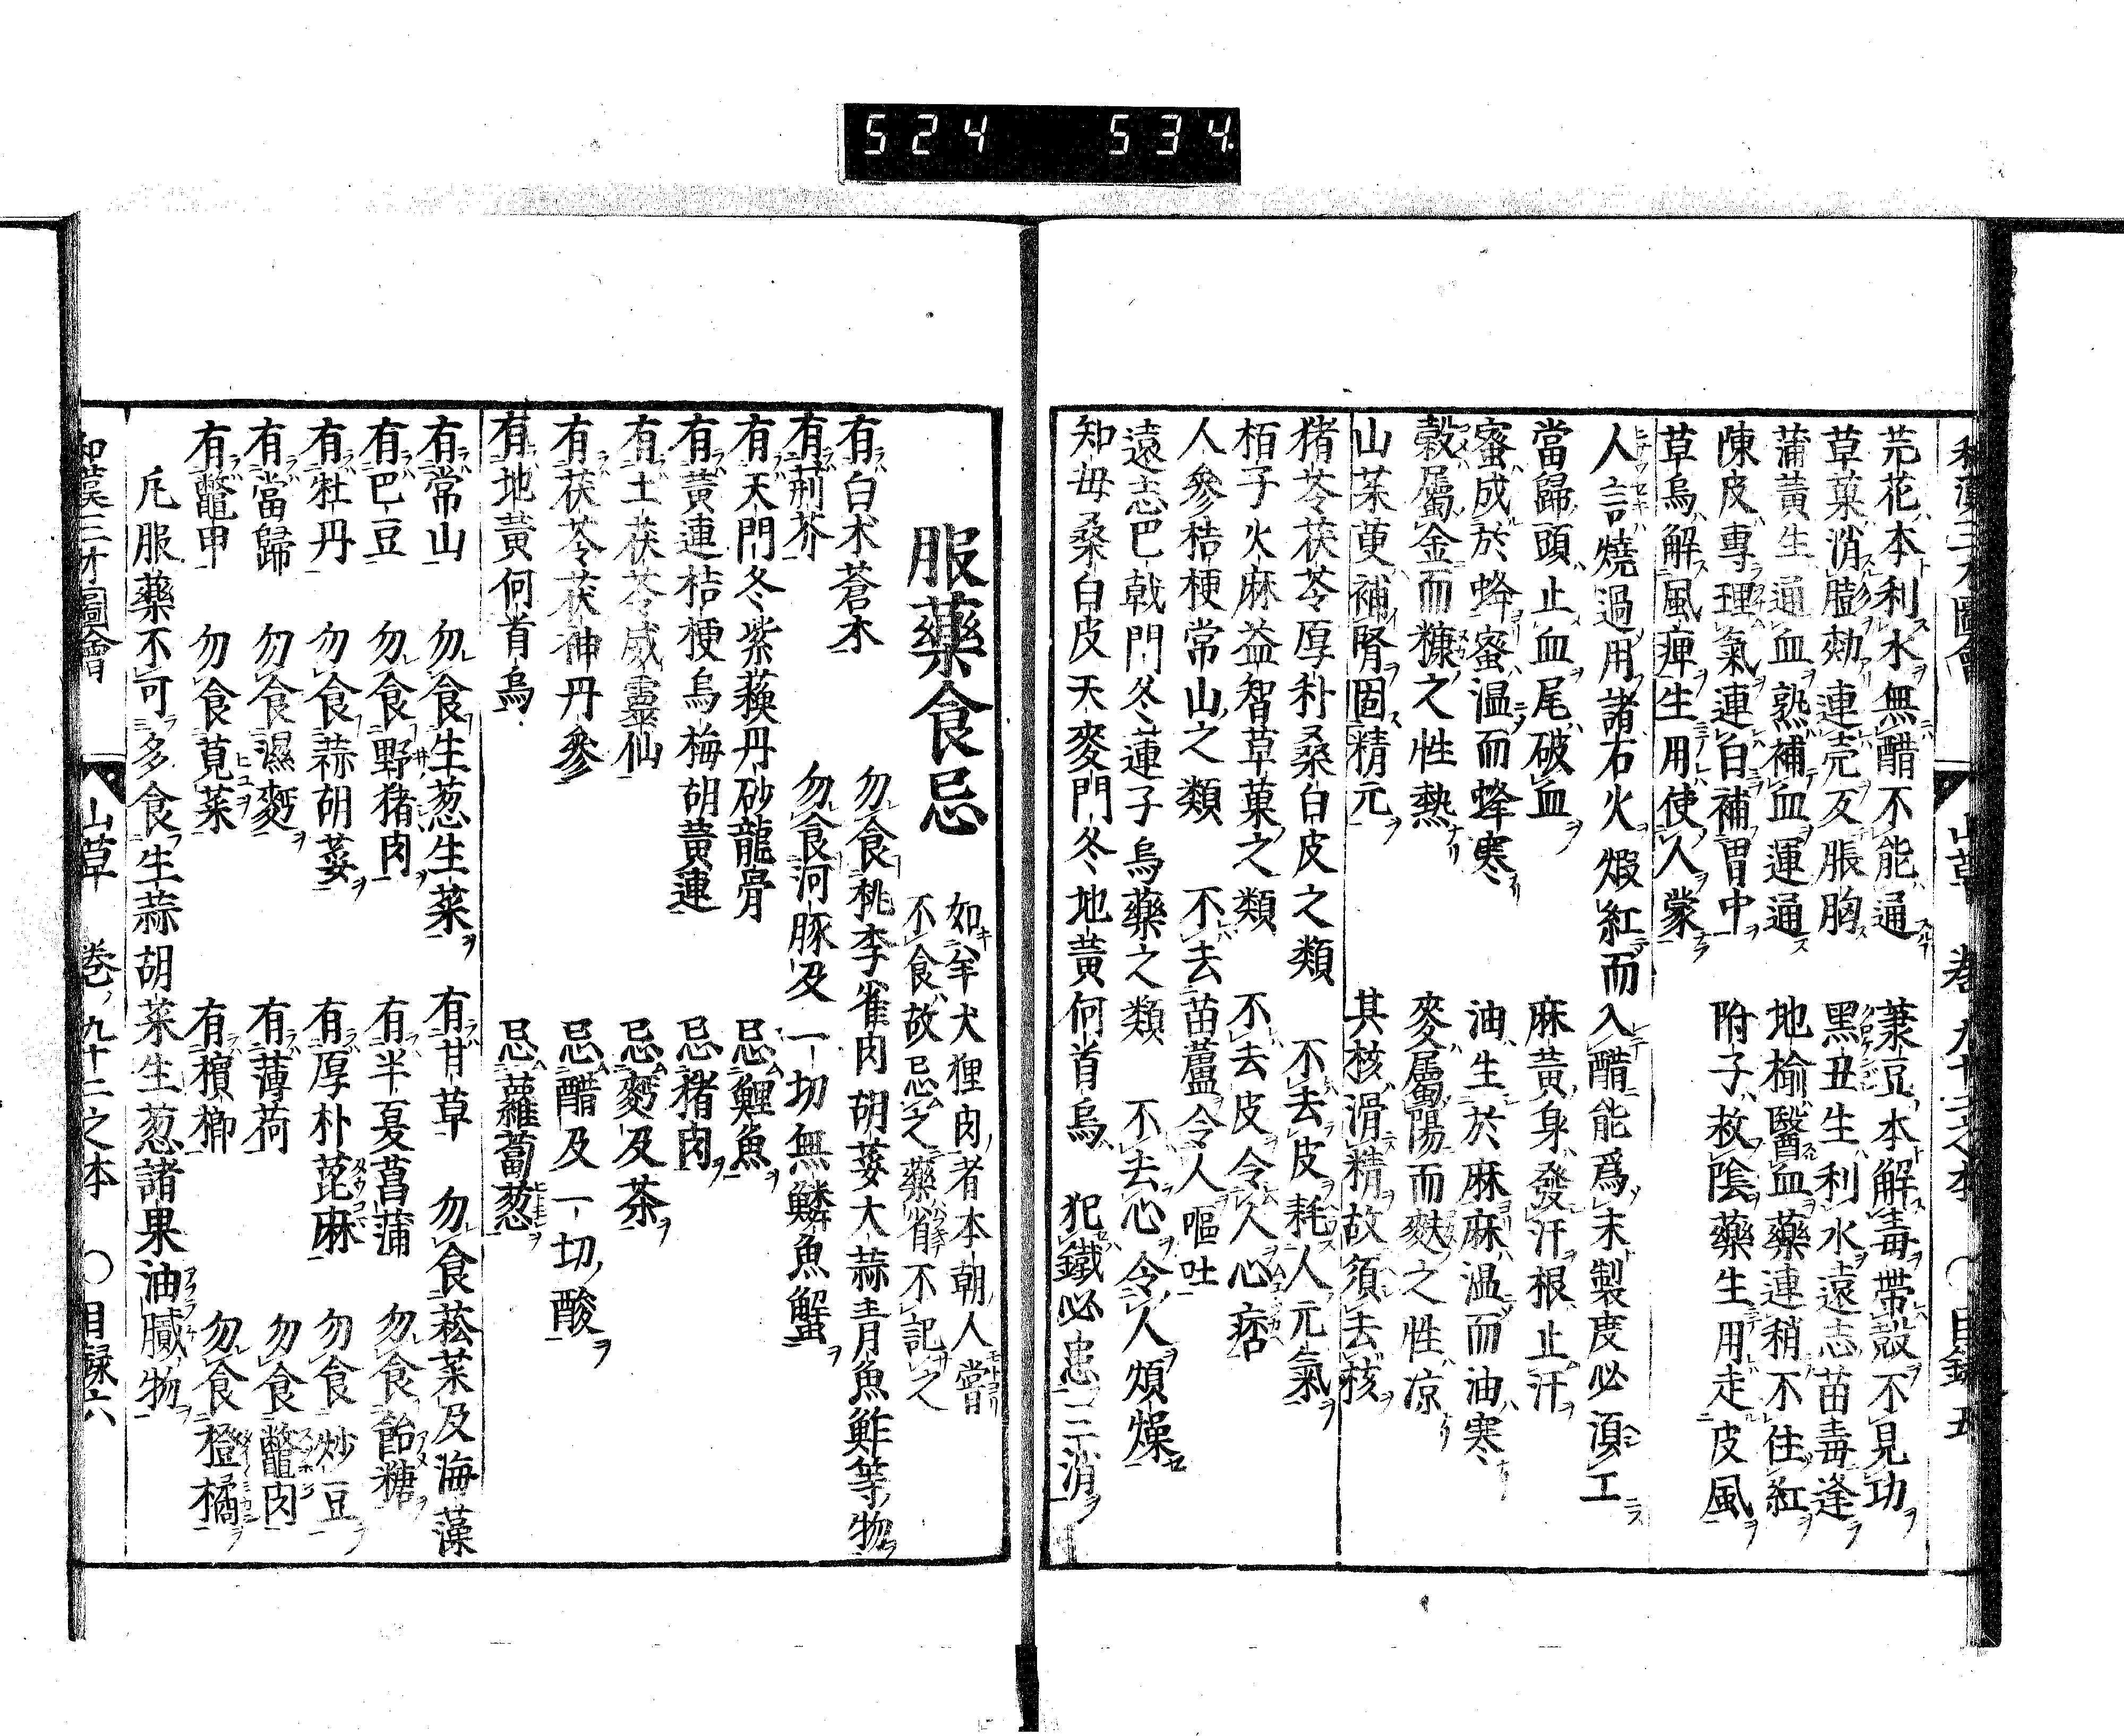 524 534
和漢三才圖會 山草 巻九十二之本 ○目録 五
芫花本利水無醋不能通 菉豆本解毒帶殼不見功
草菓消膨效連壳反脹胸 黑丑生利水遠志苗毒逢
蒲黄生通血熟補血運通 地榆醫血藥連稍不住紅
陳皮專理氣連白補胃中 附子救陰藥生用走皮風
草烏解風痺生用使人蒙
人言燒過用諸石火煅紅而入醋能爲末製度必湏工
當歸頭止血尾破血 麻黄身發汗根止汗
蜜成於蜂蜜温而蜂寒 油生於麻麻温而油寒
穀屬金而糠之性熱 麥屬陽而麩之性凉
山茱萸補腎固精元 其核滑精故須去核
猪苓茯苓厚朴桑白皮之類 不去皮耗人元氣
栢子火麻益智草菓之類 不去皮令人心痞
人參桔梗常山之類 不去苗蘆令人嘔吐
遠志巴戟門冬蓮子烏藥之類 不去心令人煩燥
知毋桑白皮天麥門冬地黄何首烏 犯鐵必患三消
服藥食忌
如羊犬狸肉者本朝人嘗
不食故忌之藥省不記之
有白朮蒼朮 勿食桃李雀肉胡荽大蒜青魚鮓等物
有荊芥 勿食河豚及一切無鱗魚蟹
有天門冬紫蘇丹砂龍骨 忌鯉魚
有黄連桔梗烏梅胡黄連 忌猪肉
有土茯苓威靈仙 忌麪及茶
有茯苓茯神丹參 忌醋及一切酸
有地黄何首烏 忌蘿蔔葱
有常山 勿食生葱生菜 有甘草 勿食菘菜及海藻
有巴豆 勿食野猪肉 有半夏菖蒲 勿食飴糖
有牡丹 勿食蒜胡荽 有厚朴萞麻 勿食炒豆
有當歸 勿食濕麪 有薄荷 勿食鼈肉
有鼈甲 勿食莧菜 有檳榔 勿食橙橘
凡服藥不可多食生蒜胡菜生葱諸果油膩物
和漢三才圖會 山草 巻九十二之本 ○目録 六